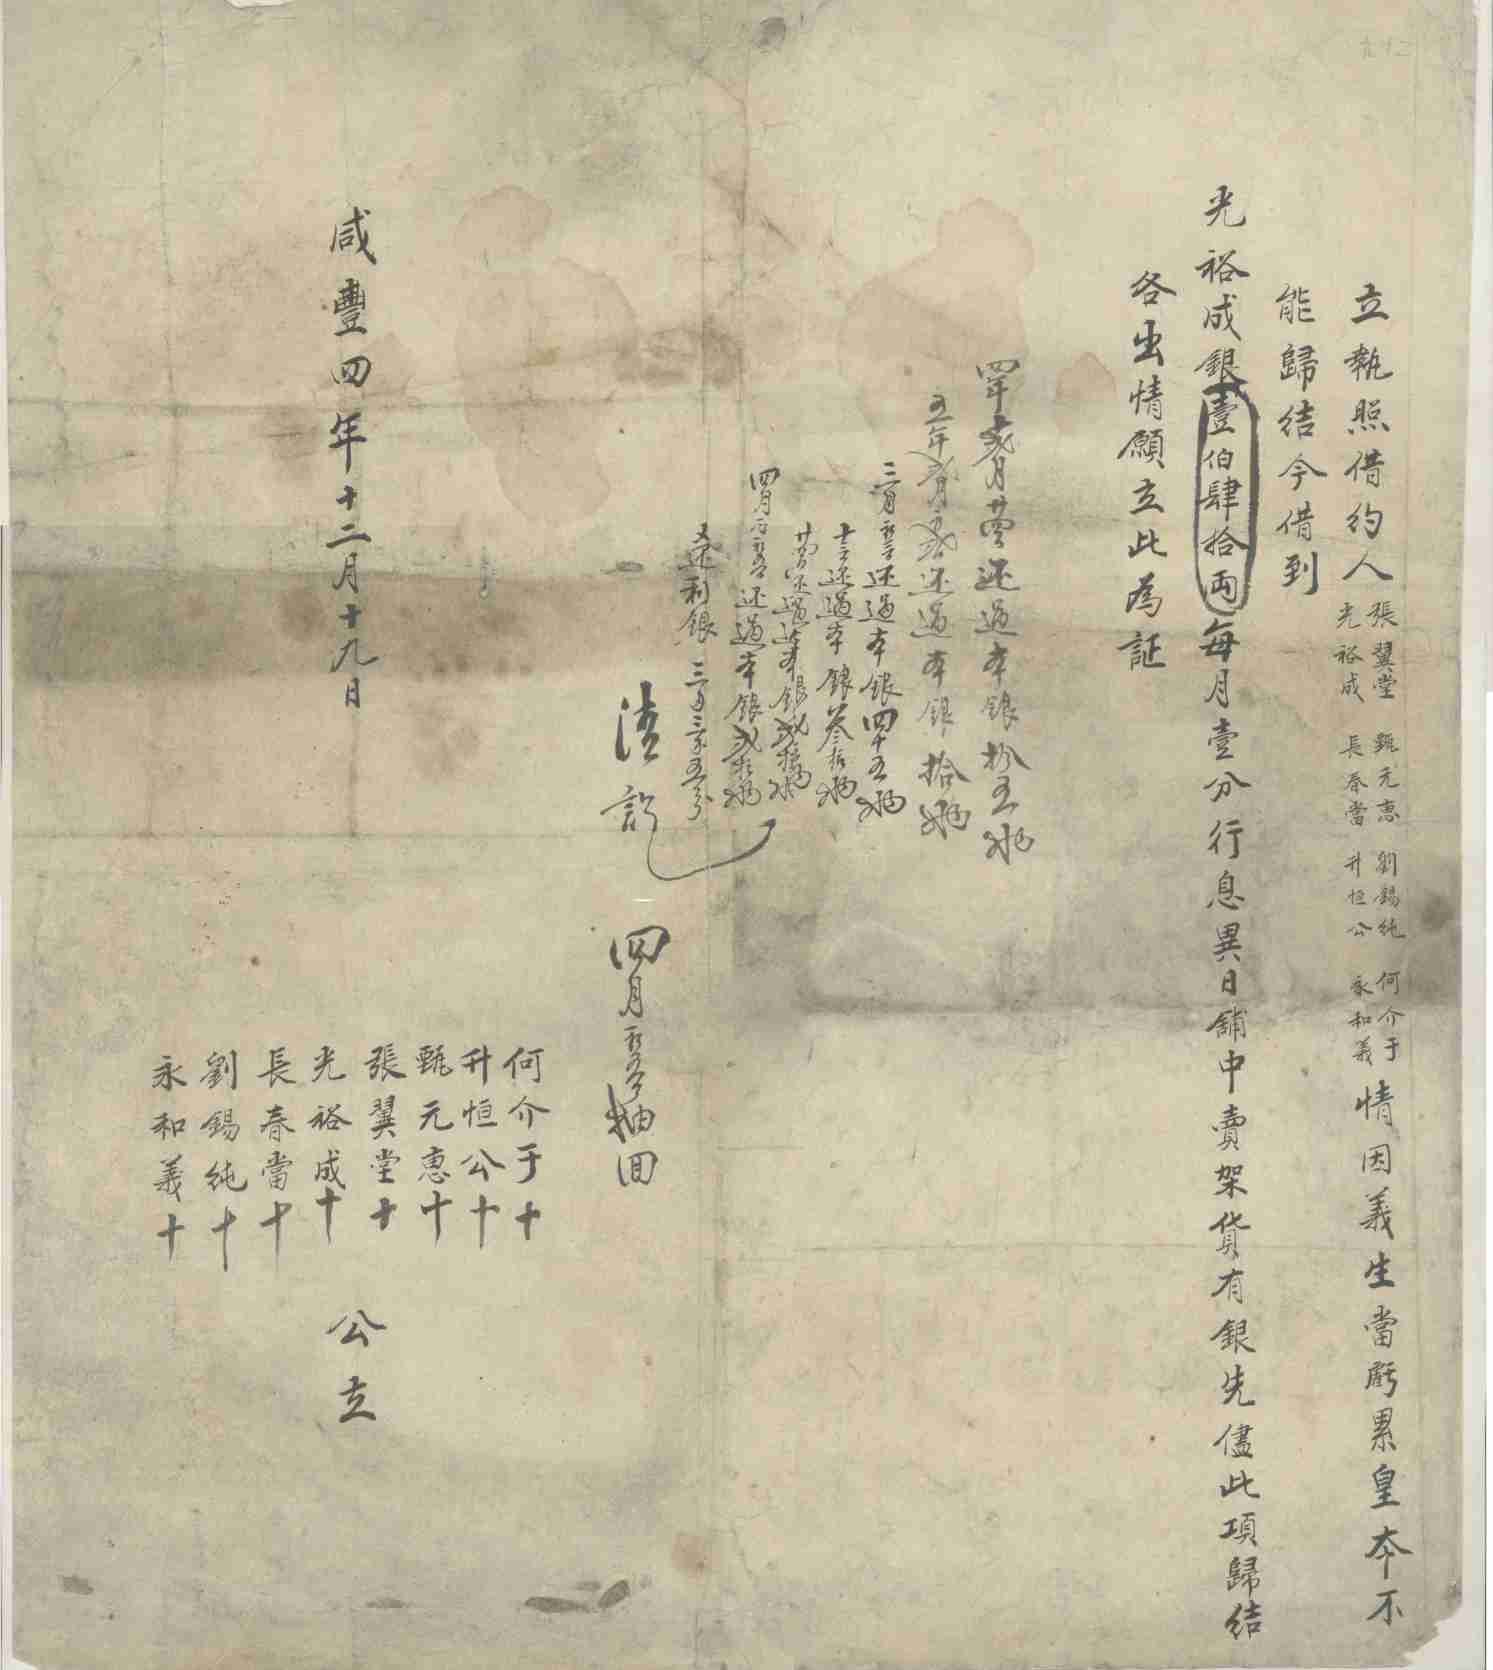 立執照借約人張翼堂 甄元惠 劉錫純 何介于
光裕成 長春當 升恒公 永和義 情因義生當虧累皇本不
能歸結今借到
光裕成銀壹伯肆拾両每月壹分行息異日舖中賣架貨有銀先儘此項歸結
各出情願立此為証
四年 月 还過本銀拾五兩
五年 还過本銀拾兩
三月 还過本銀四十五兩
十三 还過本銀叁拾兩
还過本銀貳拾兩
四月 还過本銀貳拾兩
又还利銀三
清訖
四月 抽回
咸豐四年十二月十九日
何介于十
升恒公十
甄元惠十
張翼堂十
光裕成十
長春當十
劉錫純十
永和義十
公立